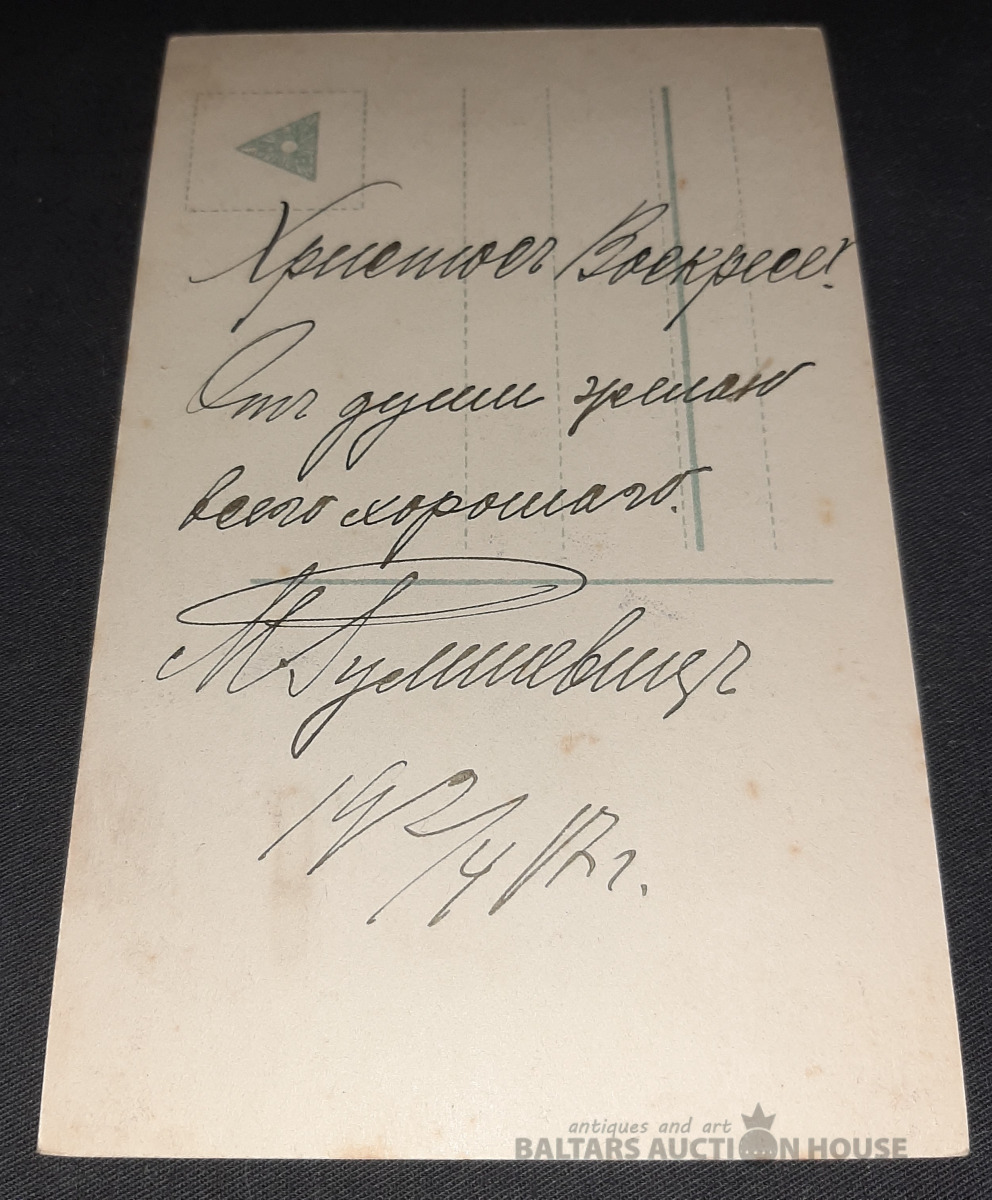 Христосъ Воскресе!
Отъ души желаю
всего хорошаго.
М
19 2/4 17 г.
antiques and art
BALTARS AUCTION HOUSE